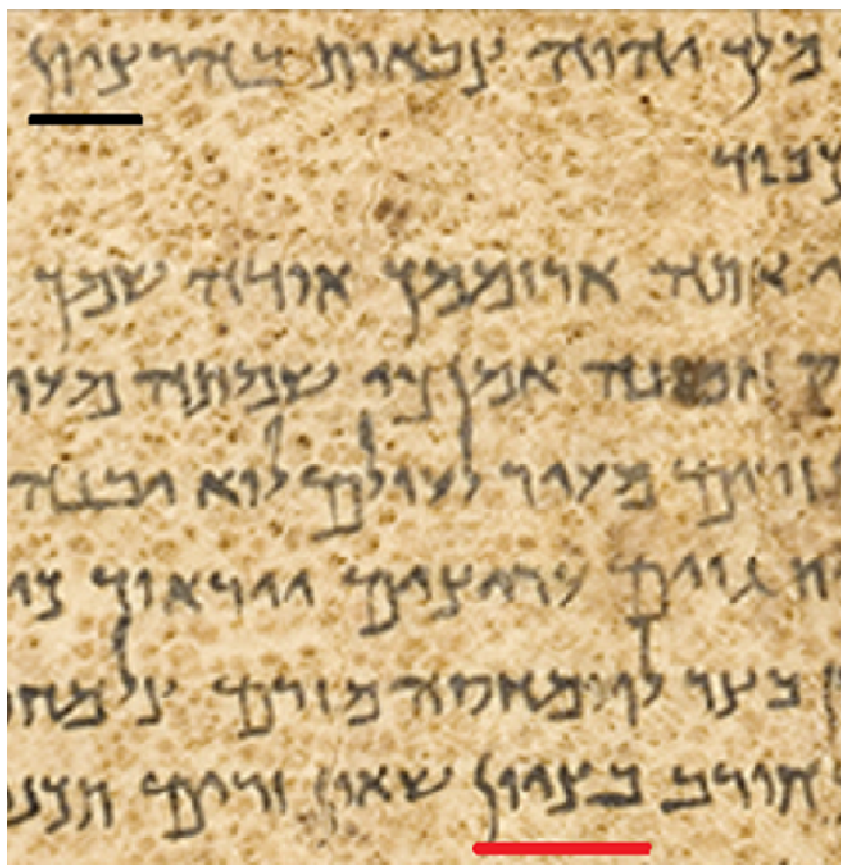 מלך יהוה צבאות בהר ציון
כבוד
אתה ארוממך אודה שמך
אמונה אמן כי שמתה מעי
זרים מעיר לעולם לוא יבנה
גוים עריצים ייראוך כי
בצר לו מחסה מזרם צל מחו
חורב בציון שאון זרים תכנ